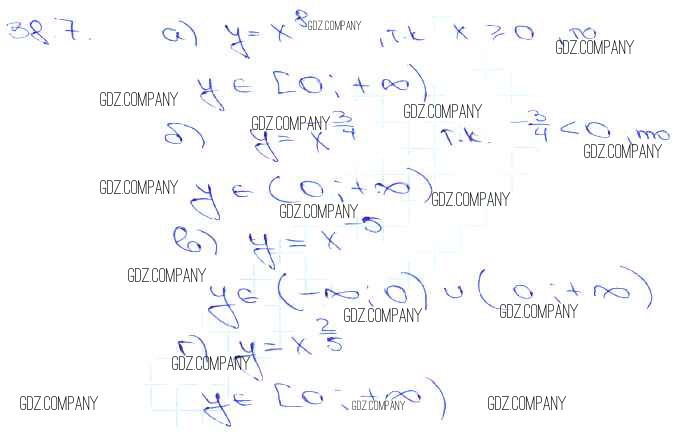 38.7. а) y = x^8 GDZ.COMPANY , т.к x ⩾ 0 , то GDZ.COMPANY
GDZ.COMPANY y ∈ [0 ; + ∞) GDZ.COMPANY
б) GDZ.COMPANY y = x^{3/4} т.к. -3/4 < 0 , то GDZ.COMPANY
GDZ.COMPANY y ∈ (0 ; +∞) GDZ.COMPANY GDZ.COMPANY
в) y = x^{-5}
GDZ.COMPANY y ∈ (-∞ ; 0) ∪ (0 ; +∞) GDZ.COMPANY GDZ.COMPANY
г) y = x^{2/5} GDZ.COMPANY
GDZ.COMPANY y ∈ [0 ; +∞) GDZ.COMPANY GDZ.COMPANY